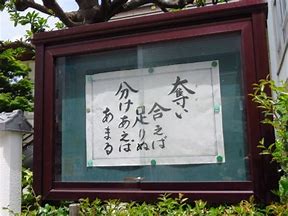 奪い
合えば
足りぬ
分けあえば
あまる